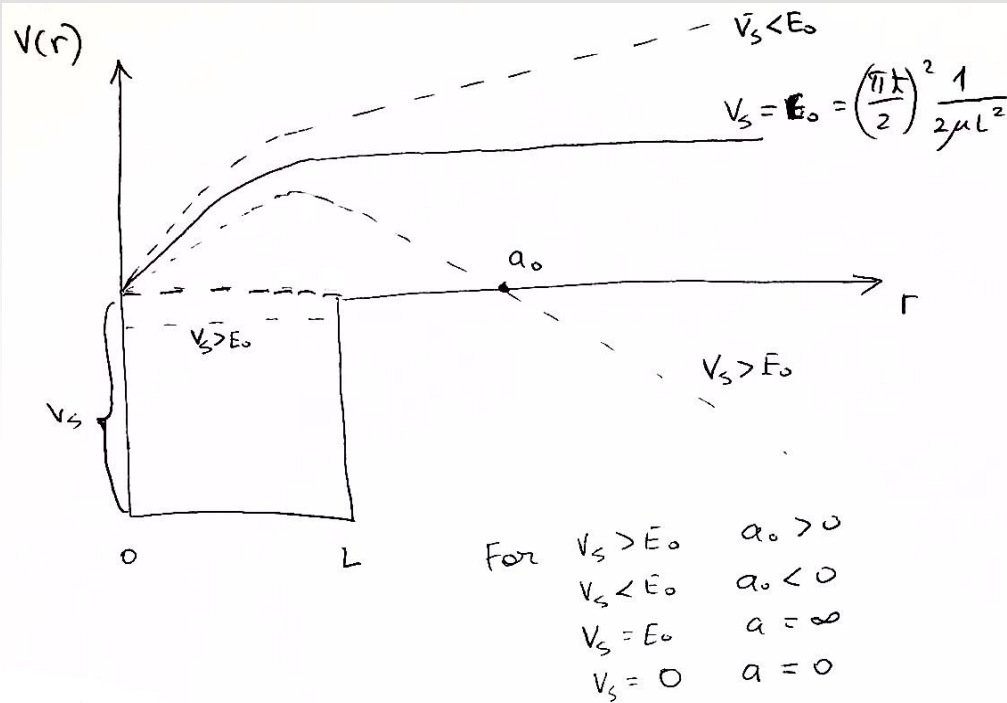 V(r)
V̄ₛ < E₀
Vₛ = E₀ = (πħ/2)² 1/2μL²
a₀
r
Vₛ > E₀
Vₛ > E₀
Vₛ
0 L
For Vₛ > E₀ a₀ > 0
Vₛ < E₀ a₀ < 0
Vₛ = E₀ a = ∞
Vₛ = 0 a = 0